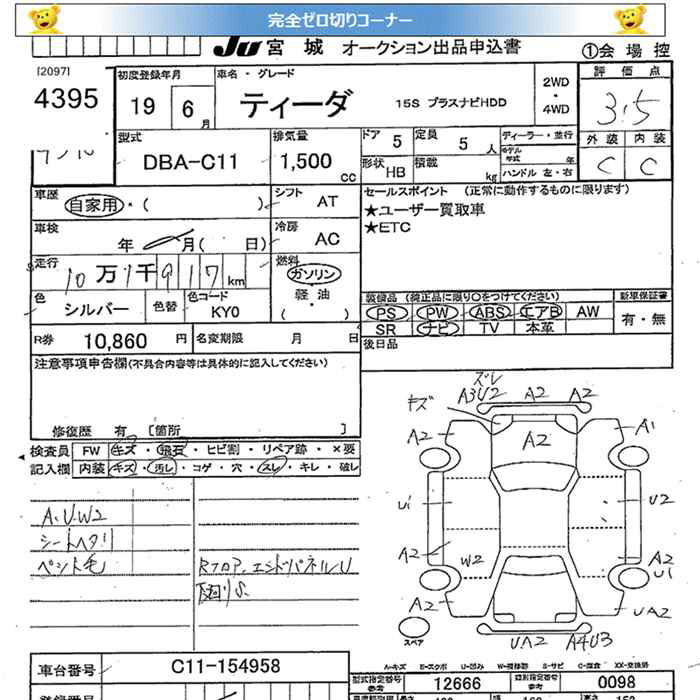 完全ゼロ切りコーナー
JU 宮城 オークション出品申込書
①会場控
[2097]
4395
初度登録年月
19 6月
車名・グレード
ティーダ
15S プラスナビHDD
2WD
・
4WD
評価点
3.5
外装 内装
C C
型式
DBA-C11
排気量
1,500
cc
ドア 5
定員 5人
形状 HB
積載 kg
ディーラー・並行
モデル年式 年
ハンドル 左・右
車歴
自家用・( )
シフト
AT
車検
年 月( 日)
冷房
AC
走行
10万1千917km
燃料
ガソリン
・
軽油
( )
色
シルバー
色替
色コード
KY0
R券
10,860 円
名変期限 月 日
セールスポイント (正常に動作するものに限ります)
★ユーザー買取車
★ETC
装備品 (純正品に限り○をつけてください)
PS PW ABS エアB AW
SR ナビ TV 本革
新車保証書
有・無
後日品
注意事項申告欄(不具合内容等は具体的に記入してください)
修復歴 有 [箇所 ]
検査員
記入欄
FW キズ・飛石・ヒビ割・リペア跡・×要
内装 キズ・汚レ・コゲ・穴・スレ・キレ・破レ
A.U.W2
シートヘタリ
ペント毛
Rフロア、エンドパネルU
S
ズレ
A3U2 A2 A2
キズ
A2 A2 A1
U1 U2
A2 W2 A2
U1
A2 UA2
UA2 A4U3
スペア
A-キズ E-エクボ U-凹み W-補修跡 S-サビ C-腐食 XX-交換済
車台番号
C11-154958
型式指定番号
参考
12666
類別指定番号
参考
0098